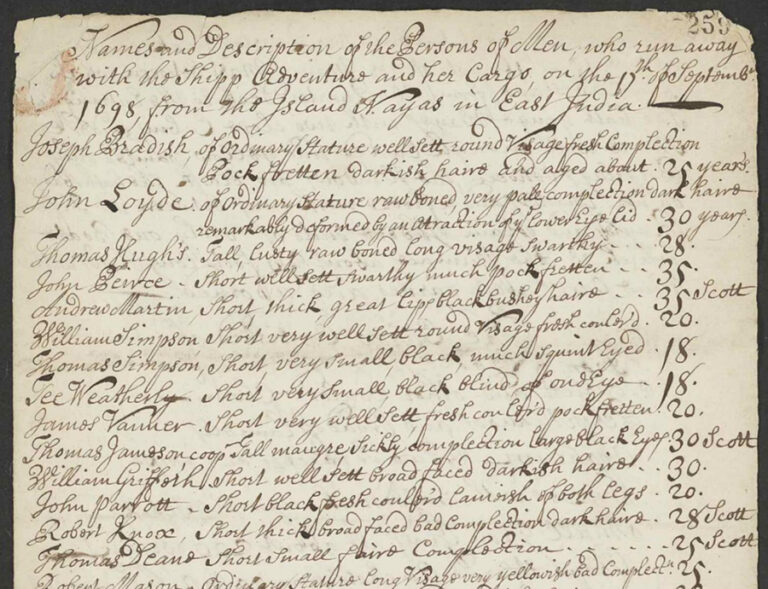 259
Names and Description of the Persons of Men, who run away
with the Shipp Adventure and her Cargo, on the 17th of Septembr
1698, from the Island Nayas in East India.
Joseph Bradish, of Ordinary Stature well sett round Visage fresh Complection
Pock fretten darkish haire and aged about . 25 years.
John Loyde. of Ordinary Stature raw boned, very pale complection dark haire
remarkably deformed by an Attraction of ye lower Eye lid . 30 years.
Thomas Hugh's. Tall lusty raw boned long visage swarthy . . . 28.
John Peirce - Short well sett swarthy much pock fretten . . 35.
Andrew Martin, Short thick, great lips black bushey haire . . 35 Scott
William Simpson Short very well sett round Visage fresh coulerd . 20.
Thomas Simpson, Short very small, black much squint Eyed . 18.
Tee Weatherly. Short very small, black blind of one Eye . 18.
James Vanner. Short very well sett fresh coulerd pock fretten. 20.
Thomas Jameson coopr Tall maugre sickly complection large black Eyes. 30 Scott
William Griffeth Short well sett broad faced darkish haire . . 30.
John Parrott - Short black fresh coulerd lameish of both legs . 20.
Robert Knox, Short thick broad faced bad Complection dark haire . 28 Scott
Thomas Deane Short small faire Complection . . . . . . 25 Scott
Robert Mason - Ordinary Stature long Visage very yellowish bad Complectn. 25.